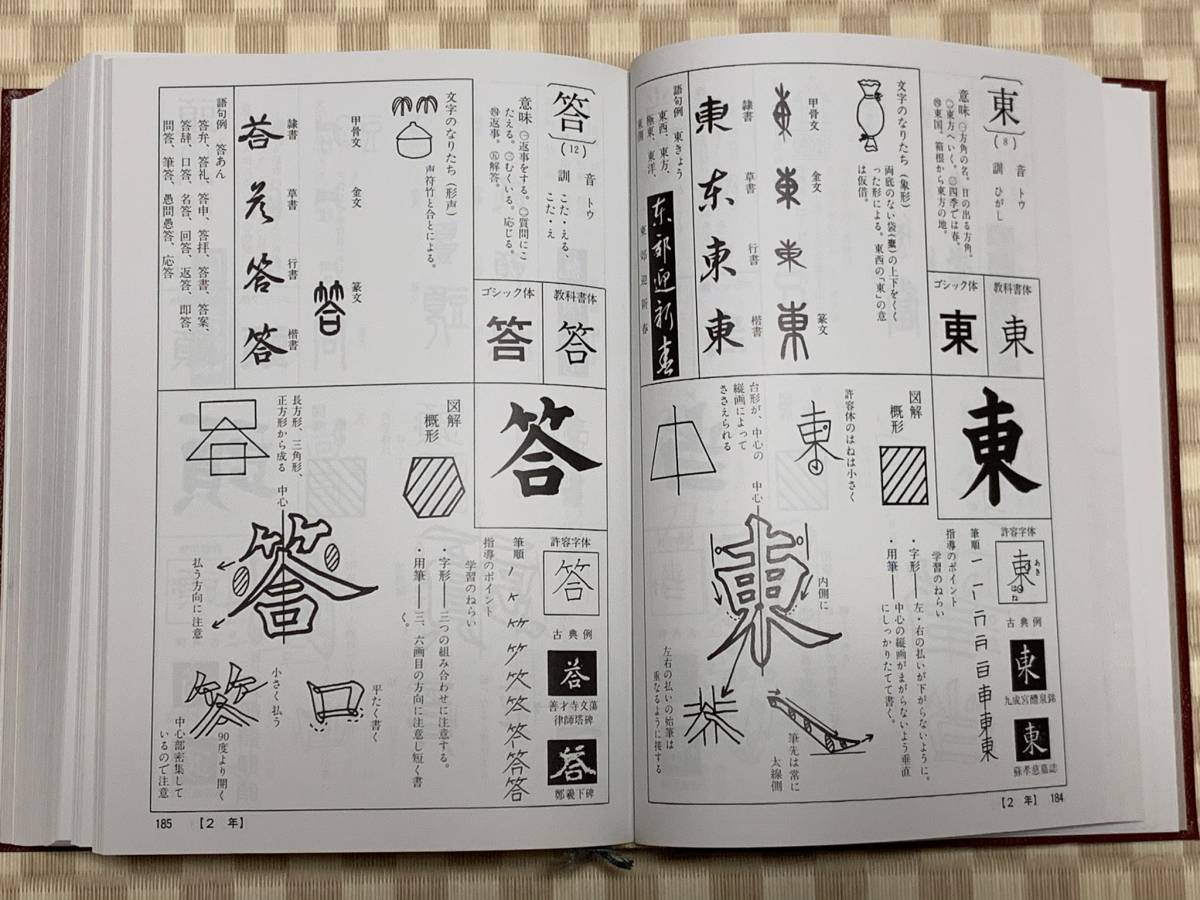 東
(8)
音 トウ
訓 ひがし
意味 ㊀方角の名。日の出る方角。
㊁東方へいく。㊂四季では春。
㊃東国。箱根から東方の地。
教科書体
東
ゴシック体
東
文字のなりたち(象形)
両底のない袋(橐)の上下をくく
った形による。東西の「東」の意
は仮借。
甲骨文
金文
篆文
東
隷書
東
草書
东
行書
東
楷書
東
語句例 東きょう
東西、東方、
極東、東洋、
東郊迎新春
东郊迎新春
東
許容字体
東
あき
はね
古典例
東
九成宮醴泉銘
東
蘇孝慈墓誌
筆順
指導のポイント
学習のねらい
・字形──左・右の払いが下がらないように。
・用筆──中心の縦画がまがらないよう垂直
にしっかりたてて書く。
図解
概形
許容体のはねは小さく
台形が、中心の
縦画によって
ささえられる
中心
東
内側に
左右の払いの始筆は
重なるように接する
筆先は常に
太線側
【2 年】 184
答
(12)
音 トウ
訓 こた・える、
こた・え
意味 ㊀返事をする。㊁質問にこ
たえる。㊂むくいる。応じる。
㊃返事。㊄解答。
教科書体
答
ゴシック体
答
文字のなりたち(形声)
声符竹と合とによる。
甲骨文
金文
篆文
答
隷書
荅
草書
行書
答
楷書
答
語句例 答あん
答弁、答礼、答申、答拝、答書、答案、
答辞、口答、名答、回答、返答、即答、
問答、筆答、愚問愚答、応答
答
許容字体
答
古典例
荅
善才寺文蕩
律師塔碑
荅
鄭羲下碑
筆順
指導のポイント
学習のねらい
・字形──三つの組み合わせに注意する。
・用筆──三、六画目の方向に注意し短く書
く。
図解
概形
長方形、三角形、
正方形から成る
中心
答
払う方向に注意
平たく書く
小さく払う
90度より開く
中心部密集して
いるので注意
185 【2 年】